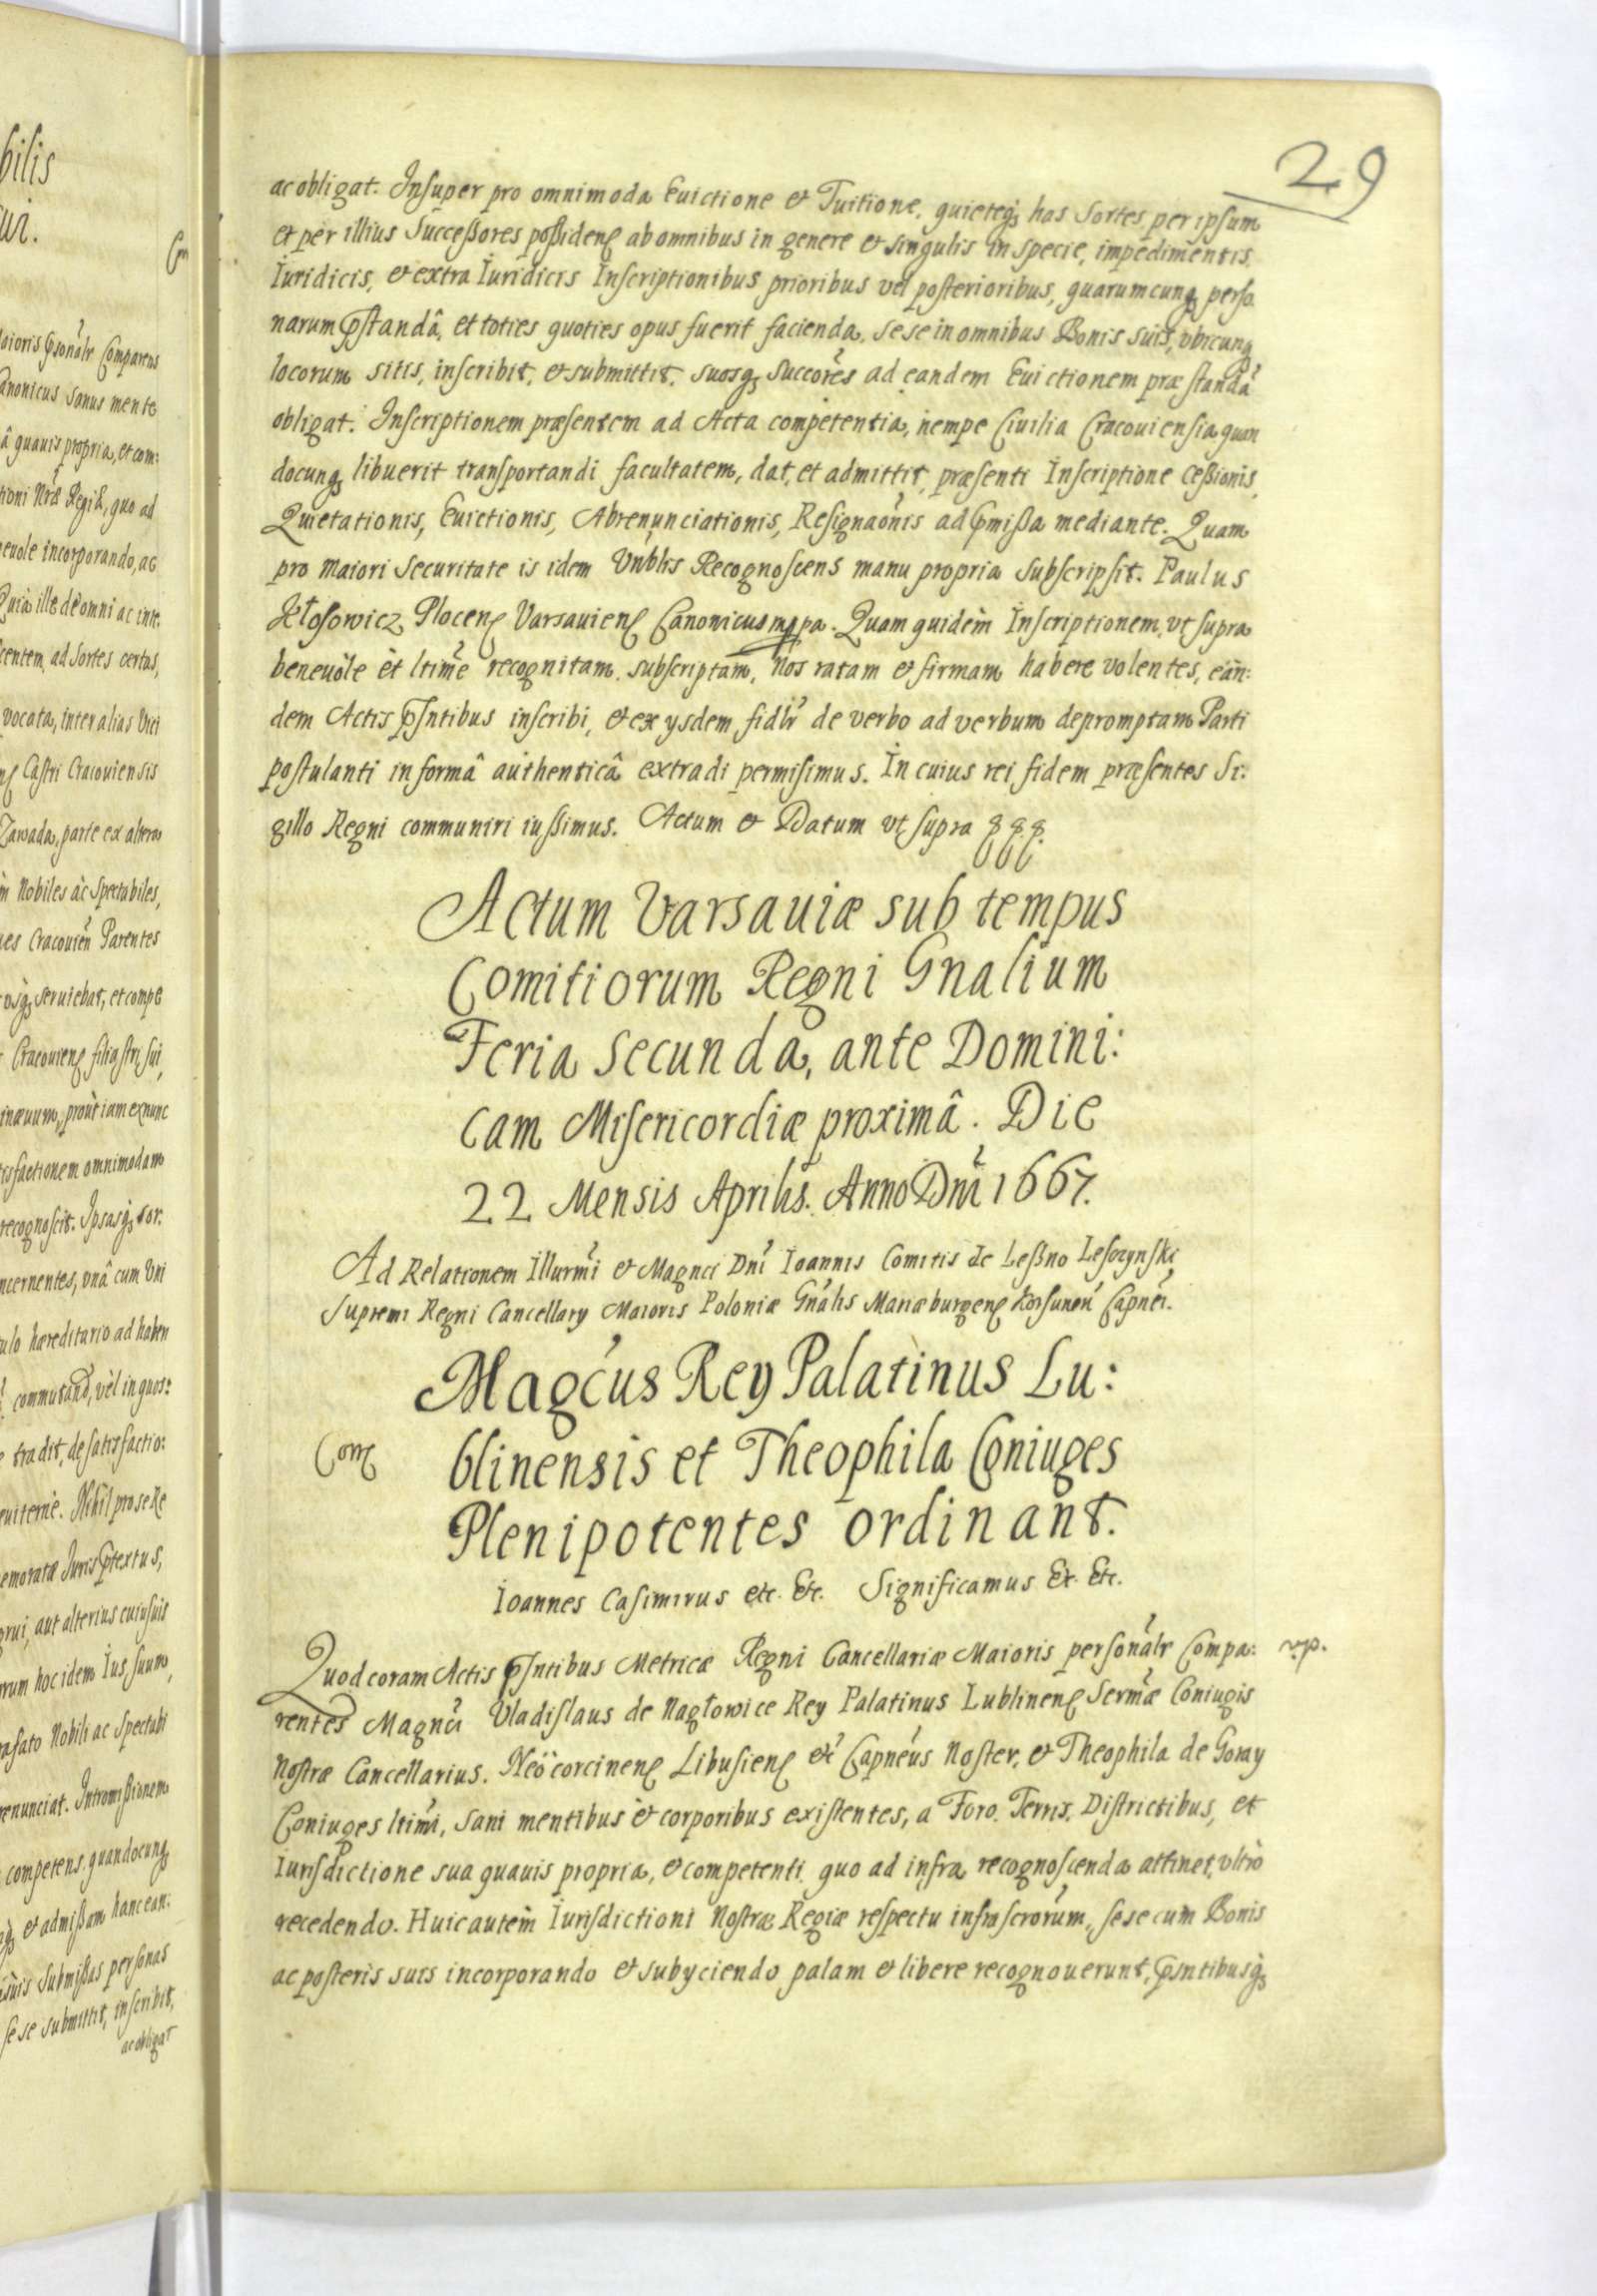 bilis
sui.
Con
Maioris psonalr Comparens
Canonicus Sanus mente
â quauis propria, et com:
tioni Nrae Regiæ, quo ad
neuole incorporando, ac
Quia ille de omni ac inte.
centem ad Sortes certas,
vocata, inter alias Vici
Castri Cracouiensis
Zawada, parte ex altera
Nobiles ac Spectabiles,
Cracouień Parentes
seruiebat, et compe
Cracouień filiastri sui,
prout iam ex nunc
tisfactionem omnimodam
recognoscit. Ipsasq sor:
ncernentes, vnâ cum Vni
ulo hæreditario ad haben
commutand, vel in quos:
tradit, de satisfactio:
euiterne. Nihil pro se Re
emoratæ Iuris ptextus,
aut alterius cuiusuis
rum hoc idem Ius, suum,
Nobili ac Spectabi
renunciat. Intromissionem
competens quandocunq
et admissam hanc ean:
suis Submissas personas
sese submittit, inscribit,
ac obligat
29
ac obligat. Insuper pro omnimoda Euictione et Tuitione, quieteq has Sortes per ipsum
et per illius Successores possidenń ab omnibus in genere et singulis in specie, impedimentis
Iuridicis, et extra Iuridicis Inscriptionibus prioribus vel posterioribus, quarumcunq perso
narum pstandâ, et toties quoties opus fuerit facienda, sese in omnibus Bonis suis, vbicunq
locorum sitis, inscribit, et submittit, suosq Succores ad eandem Euictionem præstandâ
obligat. Inscriptionem præsentem ad Acta competentia, nempe Ciuilia Cracouiensia quan
docunq libuerit transportandi facultatem, dat, et admittit, præsenti Inscriptione Cessionis,
Quietationis, Euictionis, Abrenunciationis, Resignaonis ad pmissa mediante. Quam
pro maiori Securitate is idem Vnblis Recognoscens manu propria Subscripsit. Paulus
Kłosowicz Plocen Varsauien Canonicus mppa. Quam quidem Inscriptionem, vt supra
beneuole et ltime recognitam, subscriptam, Nos ratam et firmam habere volentes, ean:
dem Actis psntibus inscribi, et ex ysdem, fidlr de verbo ad verbum depromptam Parti
postulanti in formâ authenticâ extradi permisimus. In cuius rei fidem præsentes Si:
gillo Regni communiri iussimus. Actum et Datum vt supra
Actum Varsauiæ sub tempus
Comitiorum Regni Gnalium
Feria Secunda, ante Domini:
cam Misericordiæ proximâ. Die
22 Mensis Aprilis. Anno Dni 1667.
Ad Relationem Illurmi et Magnci Dni Ioannis Comitis de Leßno Lesczynski
Supremi Regni Cancellary Maioris Poloniæ Gnalis Mariæburgen Korsunen Capnei.
Magcus Rey Palatinus Lu:
Con blinensis et Theophila Coniuges
Plenipotentes ordinant.
Ioannes Casimirus etc. Etc. Significamus Et. Etc.
Quod coram Actis psntibus Metricæ Regni Cancellariæ Maioris personalr Compa: vp.
rentes Magnci Vladislaus de Nagłowice Rey Palatinus Lublinen Sermæ Coniugis
Nostræ Cancellarius. Neocorcinen Libusien etc Capneus Noster, et Theophila de Goray
Coniuges ltimi, sani mentibus et corporibus existentes, a Foro. Terris, Districtibus, et
Iurisdictione sua quauis propria, et competenti, quo ad infra recognoscenda attinet, vltro
recedendo. Huic autem Iurisdictioni Nostræ Regiæ respectu infrascrorum, sese cum Bonis
ac posteris suis incorporando et subyciendo palam et libere recognouerunt, psntibusq